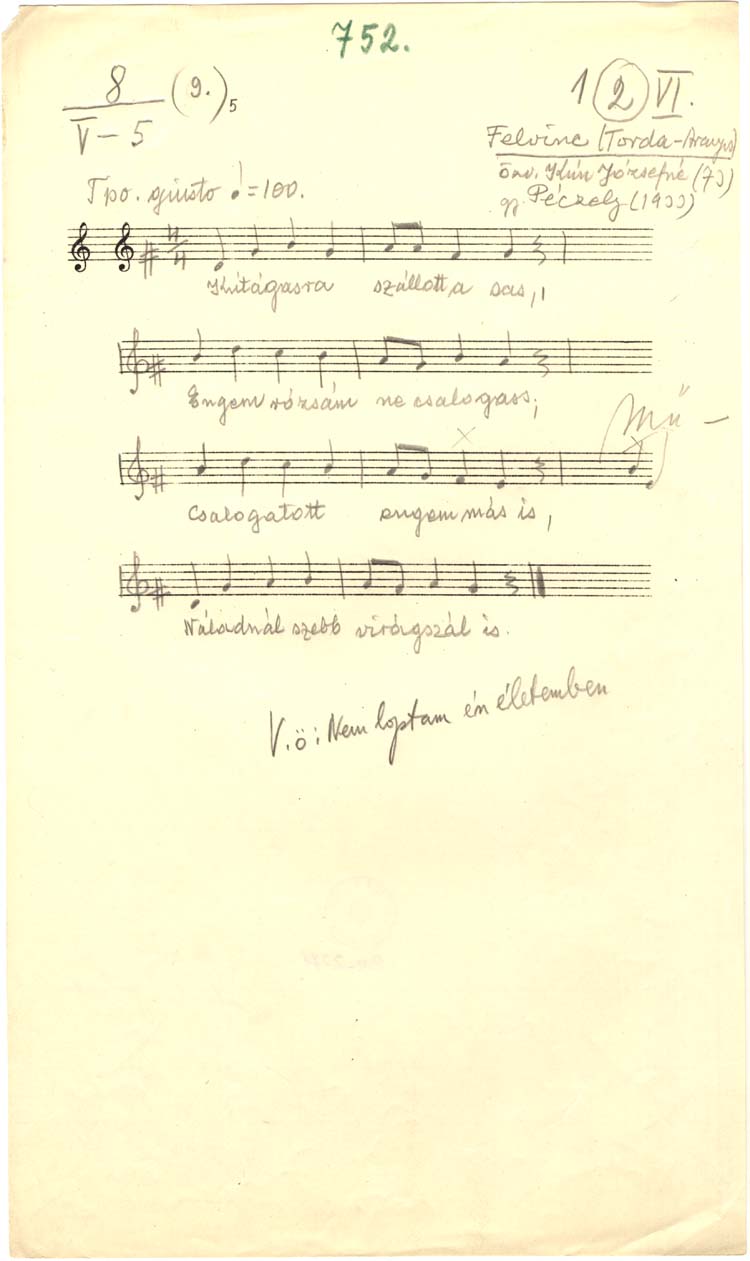 752.
8 (9.)5 1 2 VI.
V-5
Felvinc (Torda-Aranyos)
özv. Kún Józsefné (73)
gy. Péczely (1933)
Tpo. giusto ♩=100.
4/4
Kútágasra szállott a sas,
Engem rózsám ne csalogass;
Mű-
Csalogatott engem más is,
Náladnál szebb virágszál is.
V.ö: Nem loptam én életemben